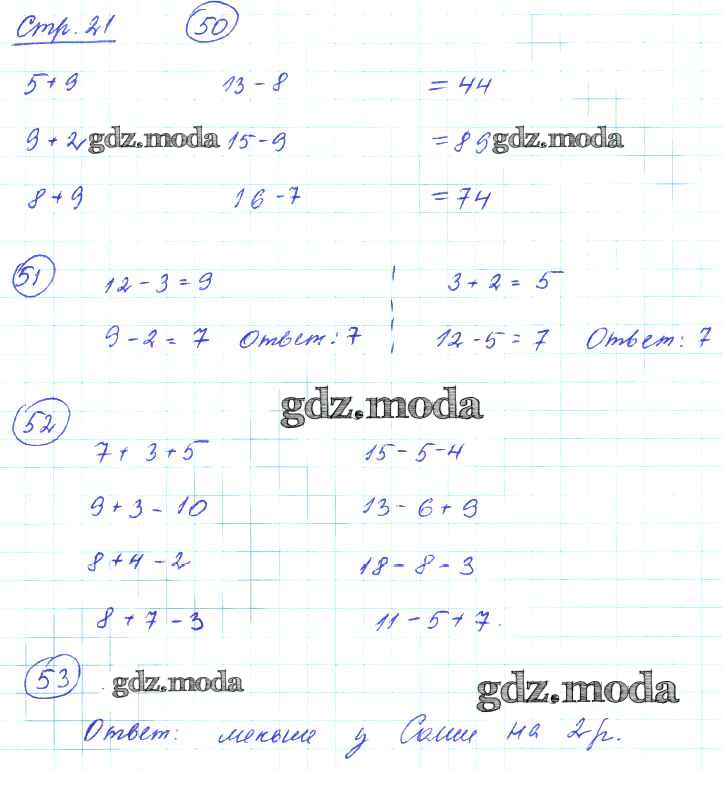 Стр. 21 50
5+9 13-8 = 44
9+2 gdz.moda 15-9 = 89 gdz.moda
8+9 16-7 = 74
51 12-3=9 3+2=5
9-2=7 Ответ: 7 12-5=7 Ответ: 7
gdz.moda
52
7+3+5 15-5-4
9+3-10 13-6+9
8+4-2 18-8-3
8+7-3 11-5+7.
53 gdz.moda gdz.moda
Ответ: меньше у Саши на 2р.